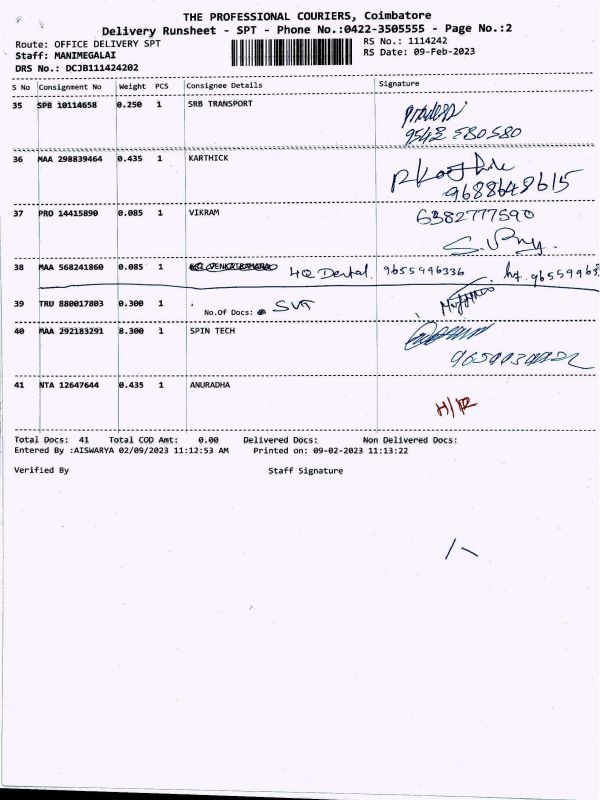 THE PROFESSIONAL COURIERS, Coimbatore
Delivery Runsheet - SPT - Phone No.:0422-3505555 - Page No.:2
Route: OFFICE DELIVERY SPT
RS No.: 1114242
Staff: MANIMEGALAI
RS Date: 09-Feb-2023
DRS No.: DCJB111424202
S No Consignment No Weight PCS Consignee Details Signature
35 SPB 10114658 0.250 1 SRB TRANSPORT
9543 580580
36 MAA 298839464 0.435 1 KARTHICK
9688648615
37 PRO 14415890 0.085 1 VIKRAM 6382777590
38 MAA 568241860 0.085 1 HQ Dental 9655996336
39 TRU 880017803 0.300 1 .
No.Of Docs: SVT
40 MAA 292183291 8.300 1 SPIN TECH
41 NTA 12647644 0.435 1 ANURADHA
Total Docs: 41 Total COD Amt: 0.00 Delivered Docs: Non Delivered Docs:
Entered By :AISWARYA 02/09/2023 11:12:53 AM Printed on: 09-02-2023 11:13:22
Verified By Staff Signature